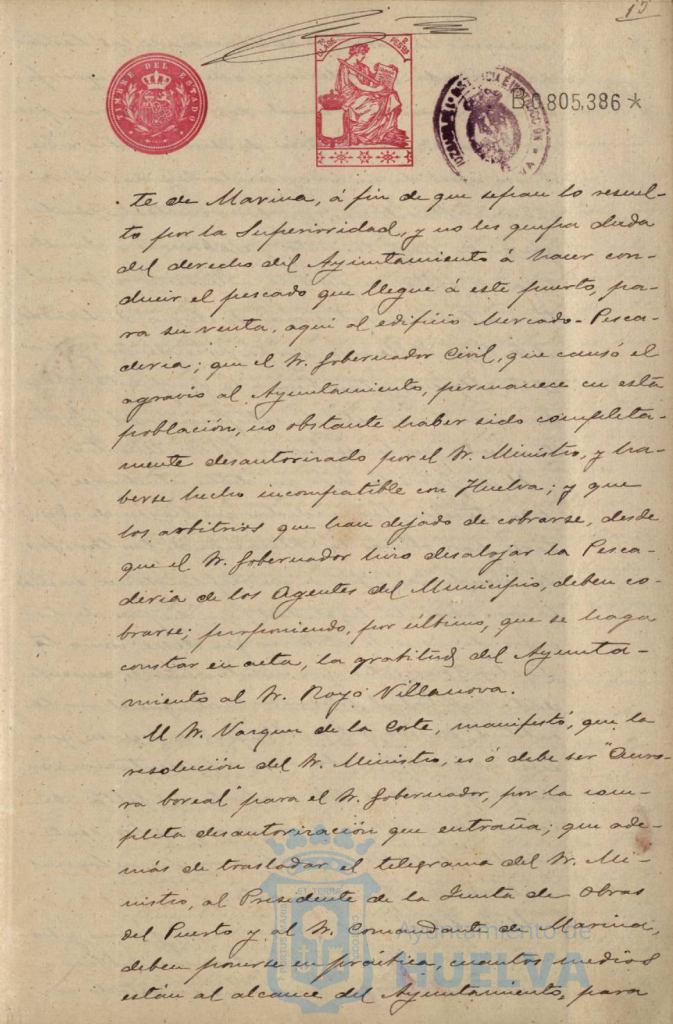 15
TIMBRE DEL ESTADO
7ª CLASE
B.0.805.386*
te de Marina, á fin de que sepan lo resuel-
to por la Superioridad, y no les quepa duda
del derecho del Ayuntamiento á hacer con-
ducir el pescado que llegue á este puerto, pa-
ra su venta, aqui al edificio Mercado-Pesca-
deria; que el Sr. Gobernador Civil, que causó el
agravio al Ayuntamiento, permanece en esta
población, no obstante haber sido completa-
mente desautorizado por el Sr. Ministro, y ha-
berse hecho incompatible con Huelva; y que
los arbitrios que han dejado de cobrarse, desde
que el Sr. Gobernador hizo desalojar la Pesca-
deria de los Agentes del Municipio, deben co-
brarse; proponiendo, por último, que se haga
constar en acta, la gratitud del Ayunta-
miento al Sr. Royo Villanova.
El Sr. Vazquez de la Corte, manifestó, que la
resolución del Sr. Ministro, es ó debe ser "Auro-
ra boreal" para el Sr. Gobernador, por la com-
pleta desautorización que entraña; que ade-
más de trasladar el telegrama del Sr. Mi-
nistro, al Presidente de la Junta de Obras
del Puerto y al Sr. Comandante de Marina,
deben ponerse en práctica, cuantos medios
están al alcance del Ayuntamiento, para
Ayuntamiento de
HUELVA